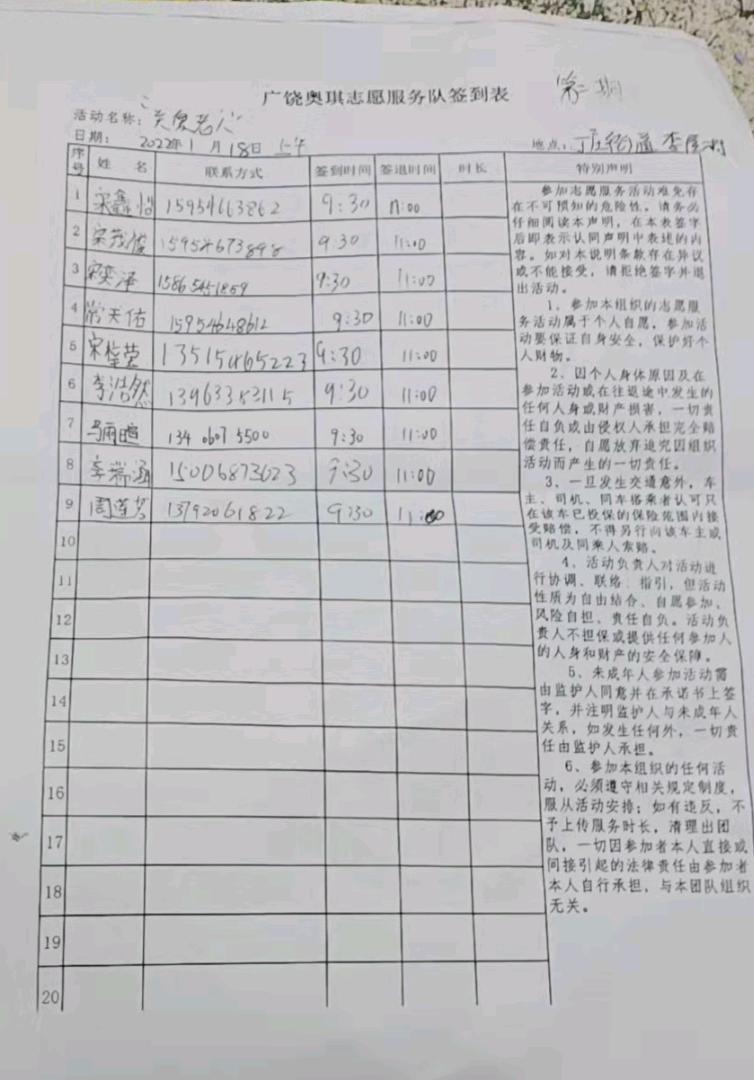 广饶奥琪志愿服务队签到表
第二期
活动名称：关爱老人
日期： 2022年1月18日 上午
地点：丁庄街道李屋村
序号 姓名 联系方式 签到时间 签退时间 时长 特别声明
1 宋鑫怡 15954663862 9:30 11:00
2 宋茂俊 15954673898 9:30 11:00
3 宋奕泽 15865451859 9:30 11:00
4 尚天佑 15954648612 9:30 11:00
5 宋莹 13515465223 9:30 11:00
6 李浩然 13963353115 9:30 11:00
7 马雨暄 134 0607 5500 9:30 11:00
8 李瑞涵 15006873023 9:30 11:00
9 周莲芳 13792061822 9:30 11:00
10
11
12
13
14
15
16
17
18
19
20
参加志愿服务活动难免存
在不可预知的危险性，请务必
仔细阅读本声明，在本表签字
后即表示认同声明中表述的内
容。如对本说明条款存在异议
或不能接受，请拒绝签字并退
出活动。
1、参加本组织的志愿服
务活动属于个人自愿，参加活
动要保证自身安全，保护好个
人财物。
2、因个人身体原因及在
参加活动或在往返途中发生的
任何人身或财产损害，一切责
任自负或由侵权人承担完全赔
偿责任，自愿放弃追究因组织
活动而产生的一切责任。
3、一旦发生交通意外，车
主、司机、同车搭乘者认可只
在该车已投保的保险范围内接
受赔偿，不得另行向该车主或
司机及同乘人索赔。
4、活动负责人对活动进
行协调、联络、指引，但活动
性质为自由结合、自愿参加、
风险自担、责任自负。活动负
责人不担保或提供任何参加人
的人身和财产的安全保障。
5、未成年人参加活动需
由监护人同意并在承诺书上签
字，并注明监护人与未成年人
关系，如发生任何外，一切责
任由监护人承担。
6、参加本组织的任何活
动，必须遵守相关规定制度，
服从活动安排；如有违反，不
予上传服务时长，清理出团
队，一切因参加者本人直接或
间接引起的法律责任由参加者
本人自行承担，与本团队组织
无关。